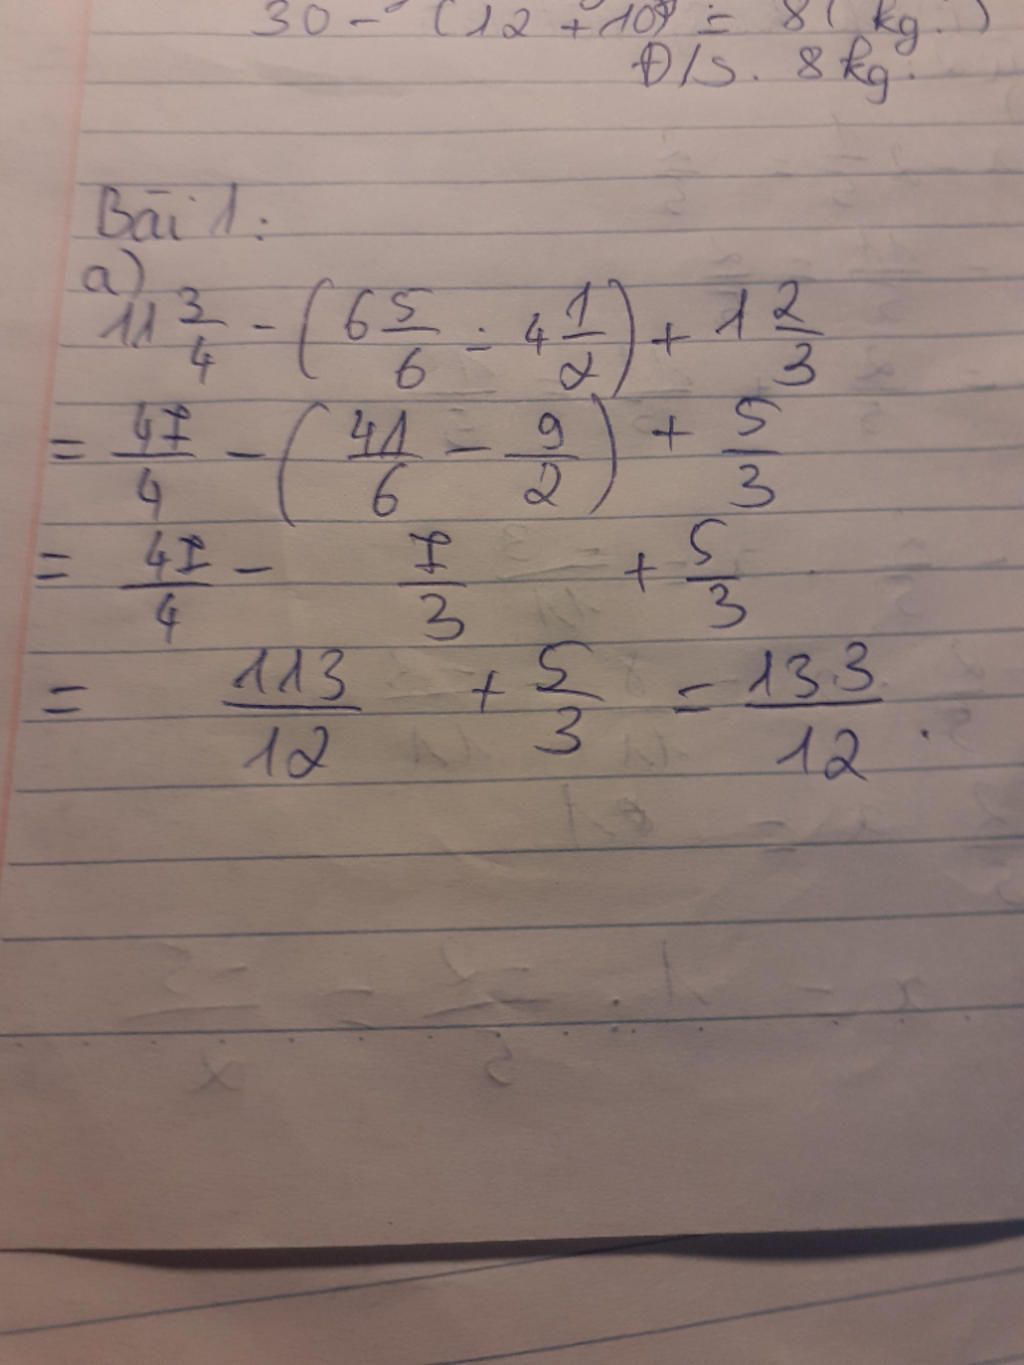 30 - (12 + 10) = 8 ( kg. )
Đ/S. 8 kg.
Bài 1:
a)
11 3/4 - ( 6 5/6 - 4 1/2 ) + 1 2/3
= 47/4 - ( 41/6 - 9/2 ) + 5/3
= 47/4 - 7/3 + 5/3
= 113/12 + 5/3 = 133/12 .